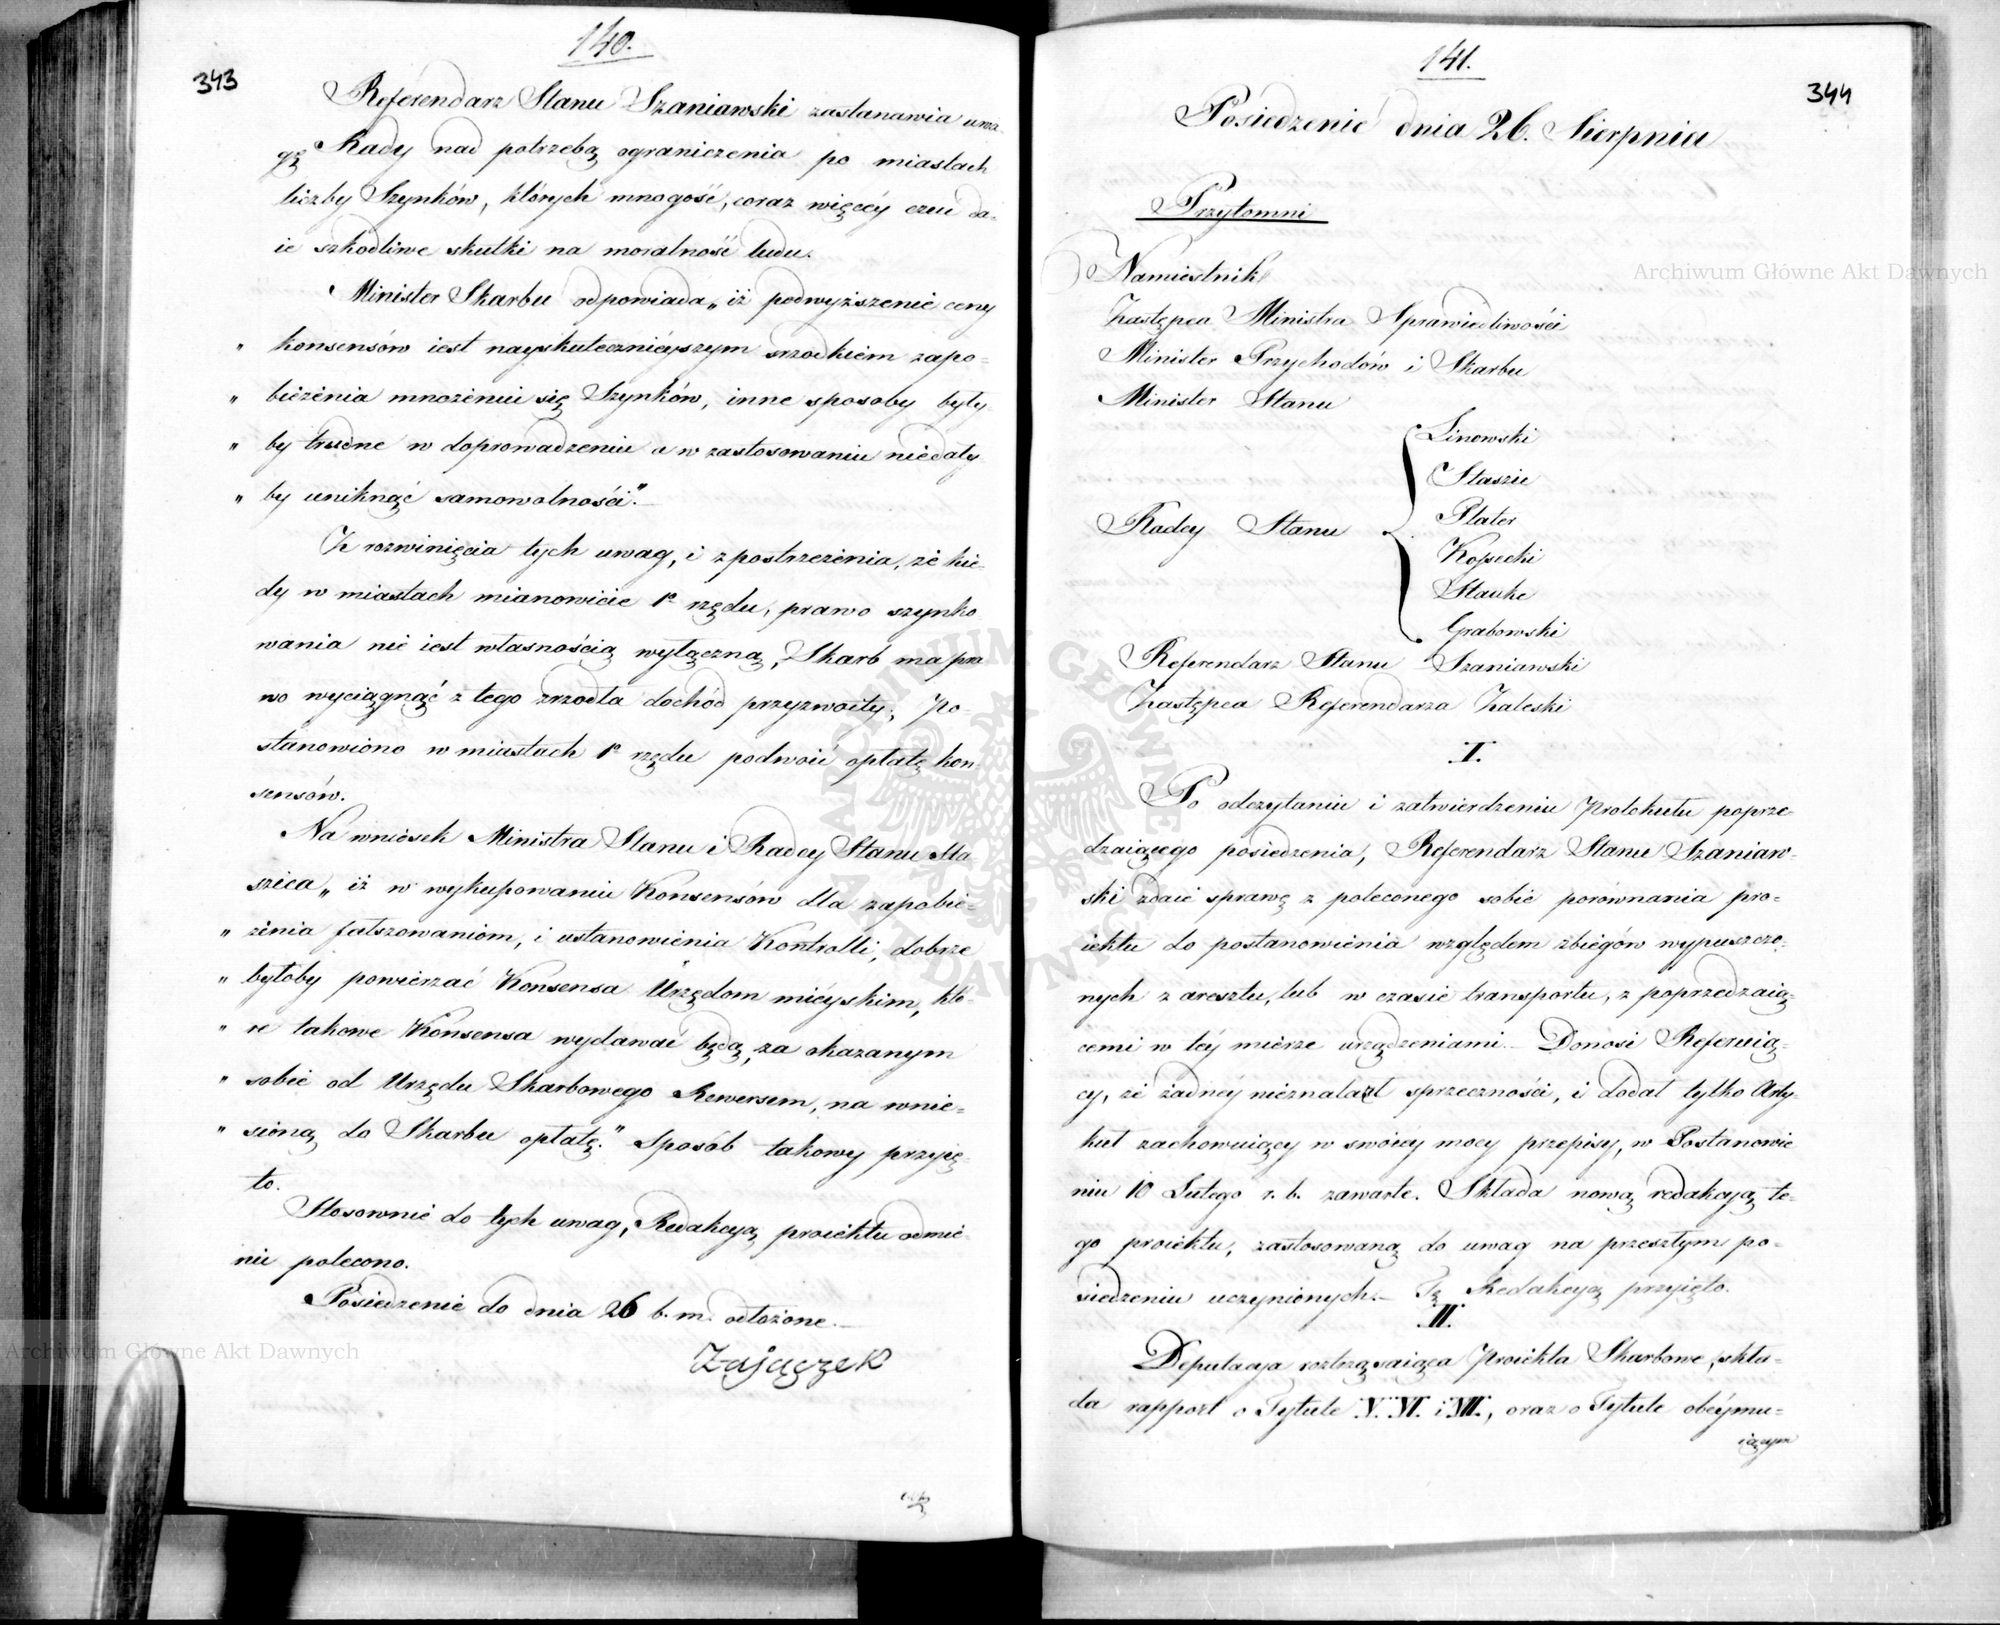 140.
343
Referendarz Stanu Szaniawski zastanawia uwa
gę Rady nad potrzebą ograniczenia po miastach
liczby Szynków, których mnogość, coraz więcéy czuć da-
ie szkodliwe skutki na moralność ludu.
Minister Skarbu odpowiada „iż podwyższenie ceny
„ konsensów iest nayskutecznieyszym srzodkiem zapo-
„ bieżenia mnożeniu się Szynków, inne sposoby były
„ by trudne w doprowadzeniu a w zastosowaniu niedały
„ by uniknąć samowolności".
Z rozwinięcia tych uwag, i z postrzeżenia, że kie-
dy w miastach mianowicie 1o rzędu, prawo szynko
wania nie iest własnością wyłączną, Skarb ma pra
wo wyciągnąć z tego zrzodła dochód przyzwoity; Po-
stanowiono w miastach 1o rzędu podwoić opłatę kon
sensów.
Na wniosek Ministra Stanu i Radcy Stanu Sta
szica „iż w wykupowaniu Konsensów dla zapobie-
„ żenia fałszowaniom, i ustanowienia Kontrolli, dobrze
„ byłoby powierzać Konsensa Urzędom mieyskim, któ-
„ re takowe Konsensa wydawać będą, za okazanym
„ sobie od Urzędu Skarbowego Rewersem, na wnie-
„ sioną do Skarbu opłatę." Sposób takowy przyię-
to.
Stosownie do tych uwag, Redakcyą proiektu odmie-
nić polecono.
Posiedzenie do dnia 26 b. m. odłożone.
Zajączek
141.
344
Posiedzenie dnia 26. Sierpnia
Przytomni
Namiestnik
Zastępca Ministra Sprawiedliwości
Minister Przychodów i Skarbu
Minister Stanu
Radcy Stanu
Linowski
Staszic
Plater
Kossecki
Stauke
Grabowski
Referendarz Stanu Szaniawski
Zastępca Referendarza Zaleski
I.
Po odczytaniu i zatwierdzeniu Protokułu poprze-
dzaiącego posiedzenia, Referendarz Stanu Szaniaw-
ski zdaie sprawę z poleconego sobie porównania pro-
iektu do postanowienia względem zbiegów wypuszczo-
nych z aresztu, lub w czasie transportu, z poprzedzaią-
cemi w téy mierze urządzeniami. Donosi Referuią-
cy, że żadnéy nieznalazł sprzeczności, i dodał tylko Arty-
kuł zachowuiący w swoiéy mocy przepisy, w Postanowie
niu 10 Lutego r. b. zawarte. Składa nową redakcyą te-
go proiektu, zastosowaną do uwag na przeszłym po-
siedzeniu uczynionych. Tę Redakcyą przyięto.
II.
Deputacya roztrząsaiąca Proiekta Skarbowe, skła-
da rapport o Tytule V. VI. i VII., oraz o Tytule obéymu-
iącym
Archiwum Główne Akt Dawnych
Archiwum Główne Akt Dawnych
ARCHIWUM GŁÓWNE AKT DAWNYCH